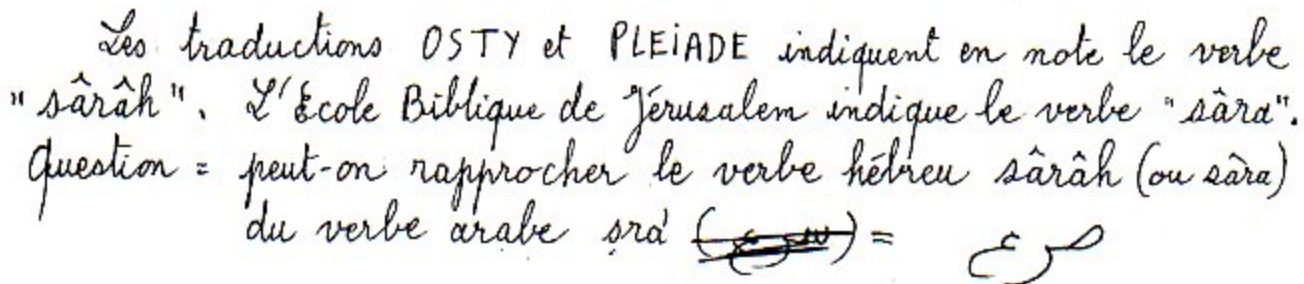 Les traductions OSTY et PLEiADE indiquent en note le verbe
"sârâh". L'École Biblique de Jérusalem indique le verbe "sâra".
Question = peut-on rapprocher le verbe hébreu sârâh (ou sâra)
du verbe arabe ṣrá = صرع